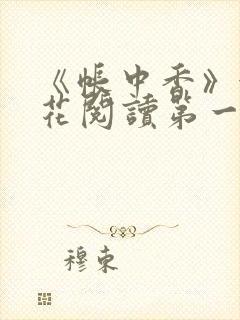 《帳中香》
花閱讀第一
穆東